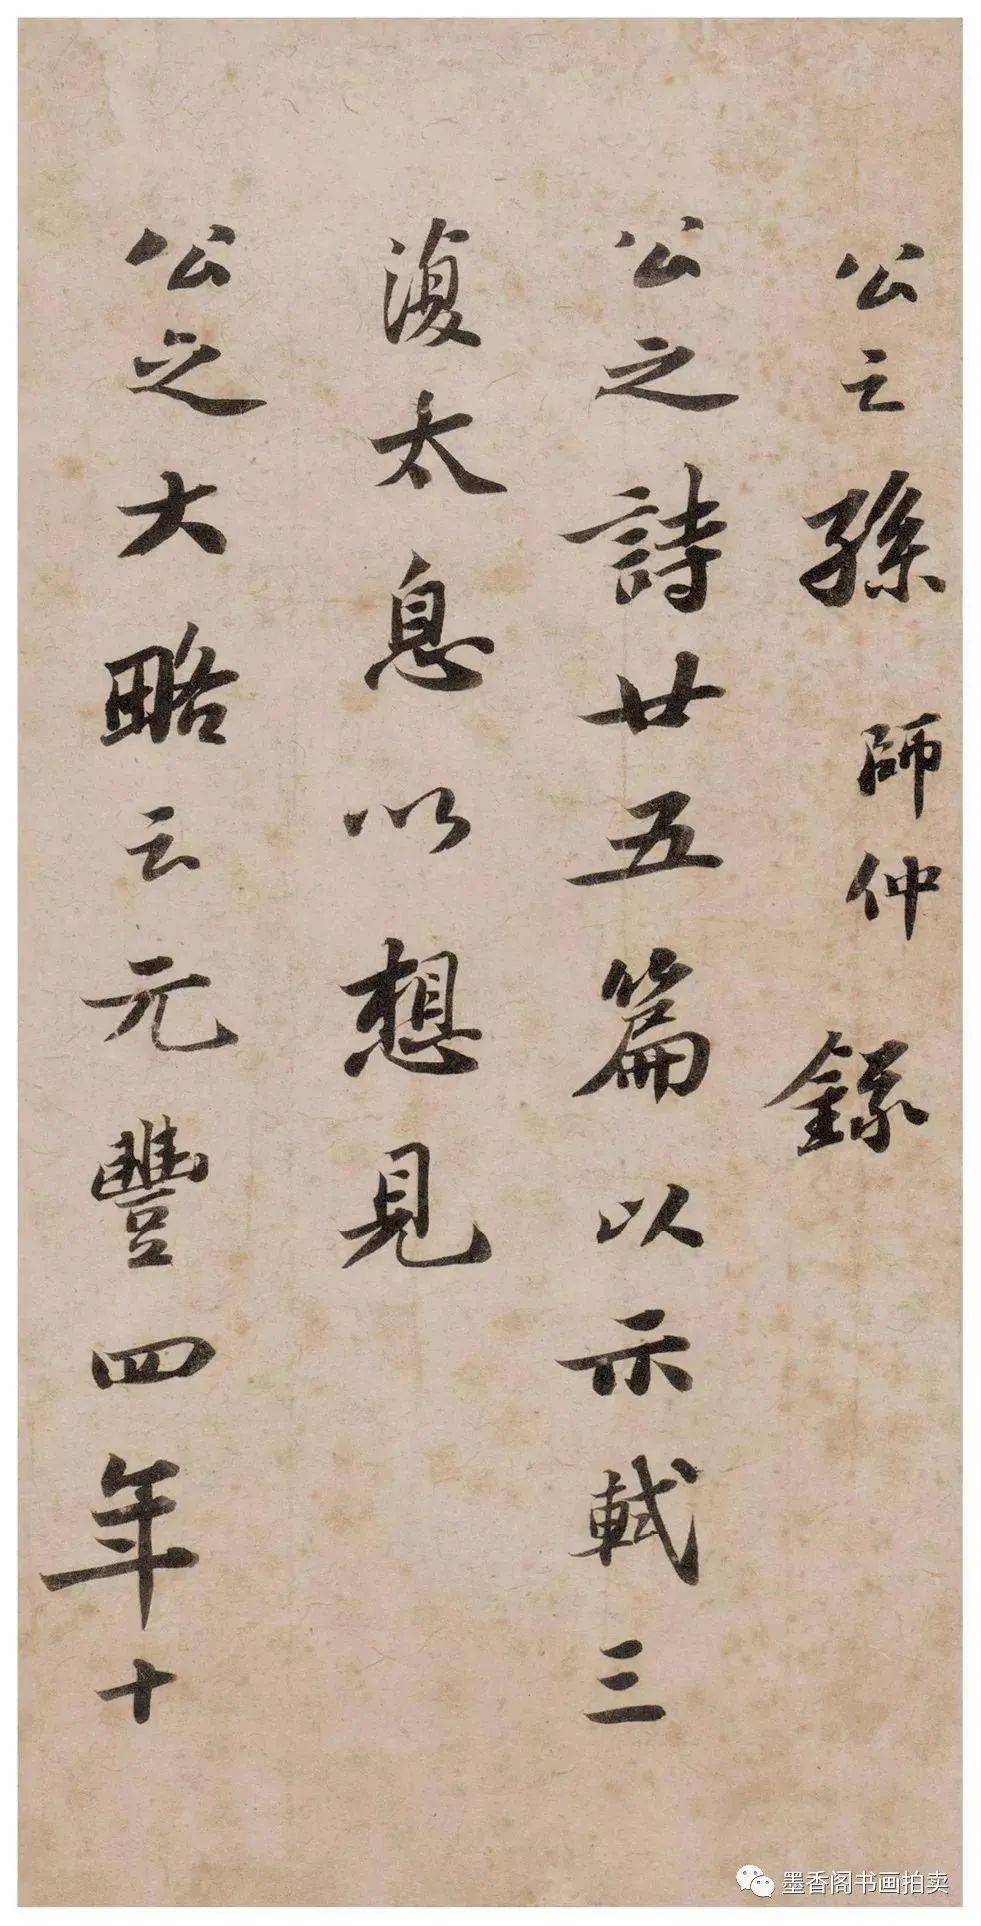 公之孫師仲錄
公之詩廿五篇以示軾三
復太息以想見
公之大略云元豐四年十
墨香阁书画拍卖